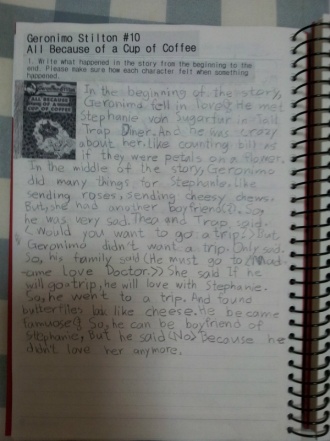 Geronimo Stilton #10
All Because of a Cup of Coffee
1. Write what happened in the story from the beginning to the
end. Please make sure how each character felt when something
happened.
ALL BECAUSE
OF A CUP
OF COFFEE
In the beginning of the story,
Geronimo fell in love. He met
Stephanie von Sugarfur in Tail
Trap Diner. And he was crazy
about her. Like counting bills as
if they were petals on a flower.
In the middle of the story, Geronimo
did many things for Stephanie. Like
sending roses, sending cheesy chews.
But, she had another boyfriend(s). So,
he was very sad. Thea and Trap said.
<Would you want to go a trip?> But
Geronimo didn't want a trip. Only sad.
So, his family said <He must go to <Mad-
ame Love Doctor.>> She said If he
will go a trip, he will love with Stephanie.
So, he went to a trip. And found
butterflies look like cheese. He became
famuose! So, he can be boyfriend of
Stephanie, But he said <No> Because he
didn't love her anymore.